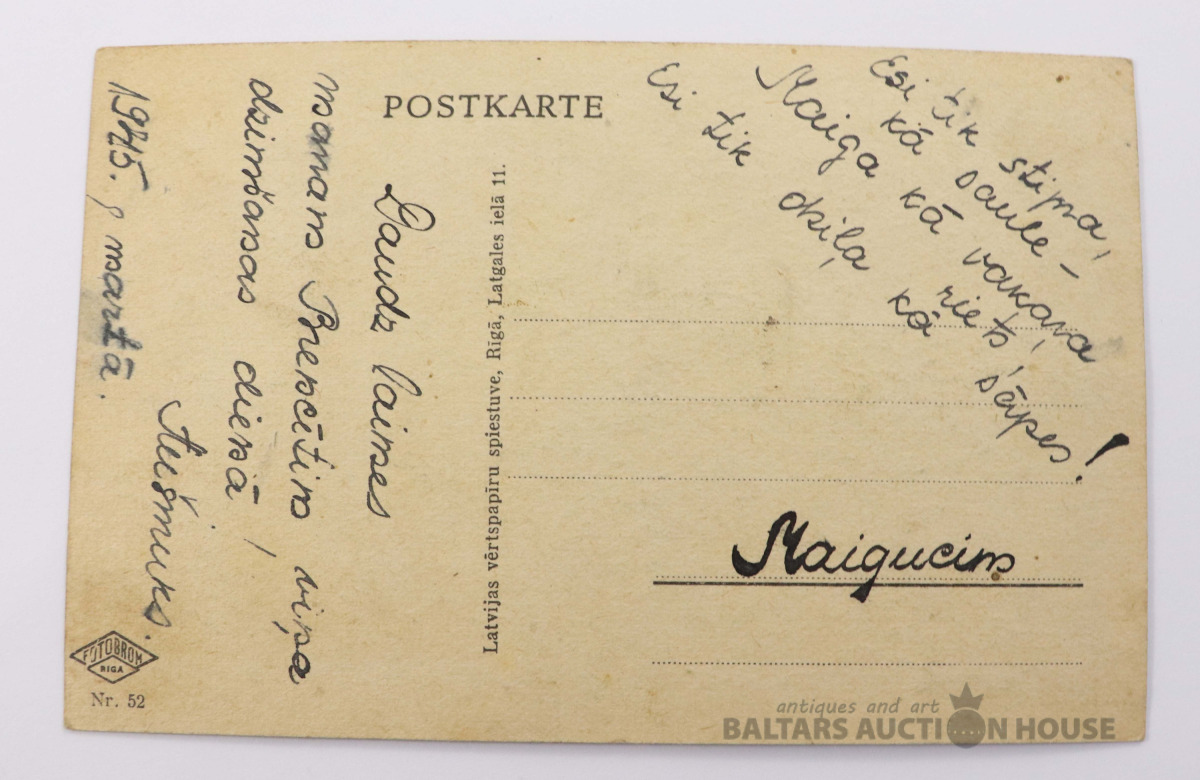 POSTKARTE
Esi tik stipra,
kā saule –
Maiga kā vakara
riets,
Esi tik dziļa kā
sāpes!
Maigucim
Daudz laimes
manam viņa
dzimšanas dienā!
Aušmuks.
1945. 9 martā.
Latvijas vērtspapīru spiestuve, Rīgā, Latgales ielā 11.
FOTOBROM
RIGA
Nr. 52
antiques and art
BALTARS AUCTION HOUSE